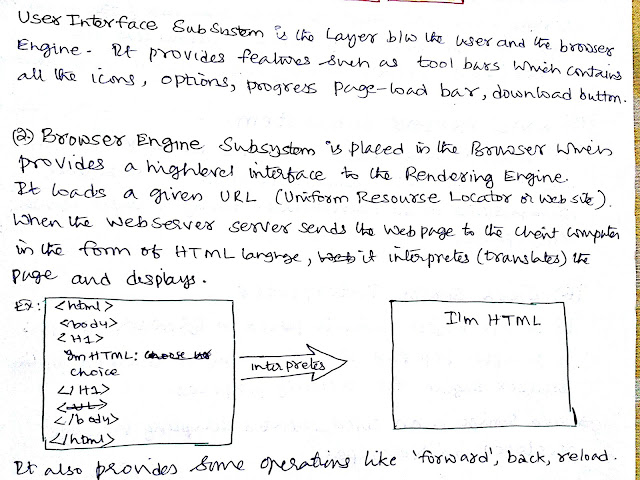 User Interface Subsystem is the Layer b/w the user and the browser
Engine. It provides features such as tool bars which contains
all the icons, options, progress page-load bar, download button.
(2) Browser Engine Subsystem is placed in the Browser which
provides a highlevel interface to the Rendering Engine.
It loads a given URL (Uniform Resourse Locator or web site).
When the webserver server sends the web page to the client computer
in the form of HTML language, it interpretes (translates) the
page and displays.
Ex: <html>
<body>
<H1>
I'm HTML:
choice
</H1>
</body>
</html>
interpretes
I'm HTML
It also provides some operations like 'forward', back, reload.